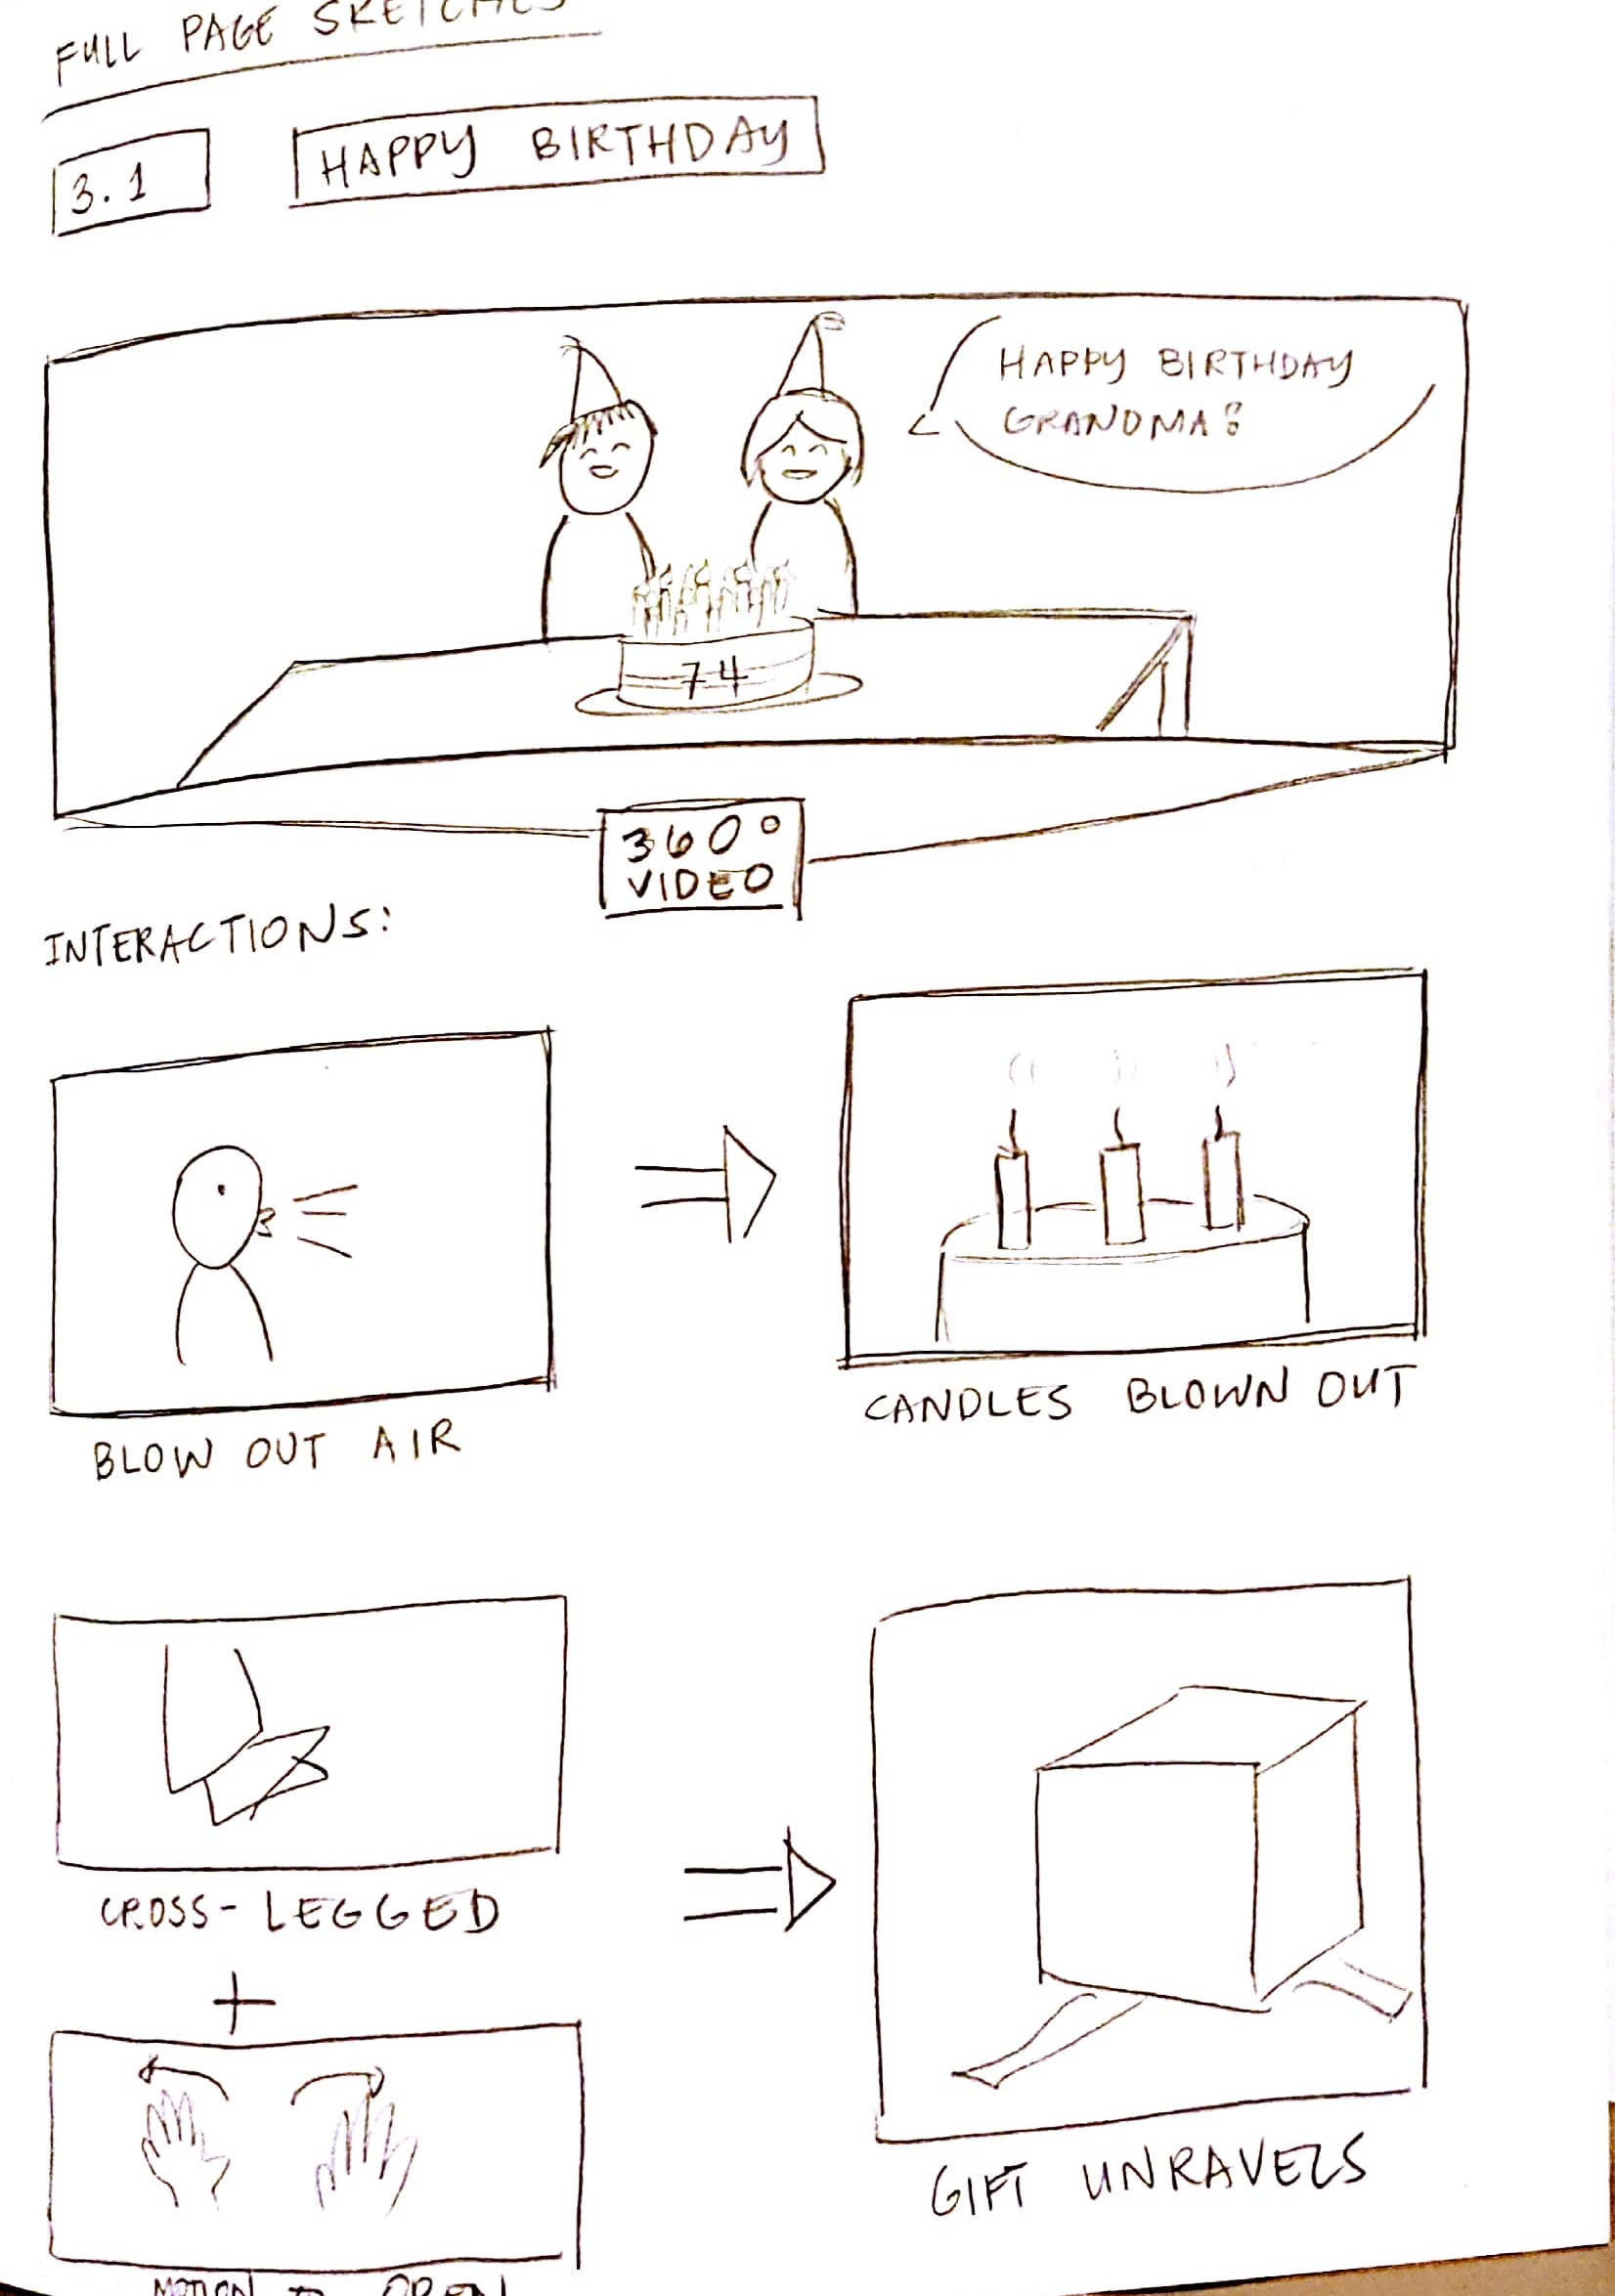 FULL PAGE SKETCHES
3.1
HAPPY BIRTHDAY
HAPPY BIRTHDAY
GRANDMA!
74
360°
VIDEO
INTERACTIONS:
BLOW OUT AIR
CANDLES BLOWN OUT
CROSS-LEGGED
+
GIFT UNRAVELS
MOTION TO OPEN